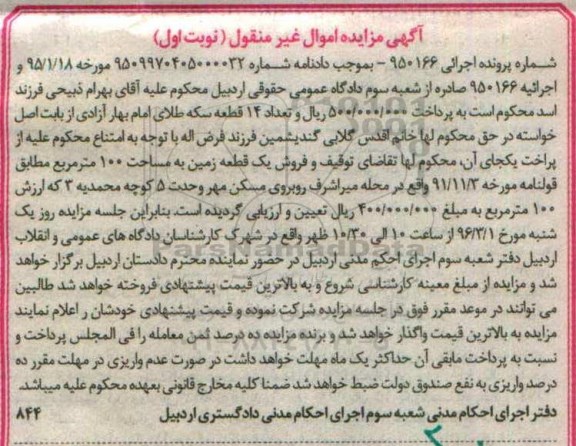 آگهی مزایده اموال غیر منقول (نوبت اول)
شماره پرونده اجرائی ۹۵۰۱۶۶ - بموجب دادنامه شماره ۹۵۰۹۹۷۰۴۰۵۰۰۰۰۳۲ مورخه ۹۵/۱/۱۸ و
اجرائیه ۹۵۰۱۶۶ صادره از شعبه سوم دادگاه عمومی حقوقی اردبیل محکوم علیه آقای بهرام ذبیحی فرزند
اسد محکوم است به پرداخت ۵۰۰/۰۰۰/۰۰۰ ریال و تعداد ۱۴ قطعه سکه طلای امام بهار آزادی از بابت اصل
خواسته در حق محکوم لها خانم اقدس گلابی گندیشمین فرزند فرض اله با توجه به امتناع محکوم علیه از
پراخت یکجای آن، محکوم لها تقاضای توقیف و فروش یک قطعه زمین به مساحت ۱۰۰ مترمربع مطابق
قولنامه مورخه ۹۱/۱۱/۳ واقع در محله میراشرف روبروی مسکن مهر وحدت ۵ کوچه محمدیه ۳ که ارزش
۱۰۰ مترمربع به مبلغ ۴۰۰/۰۰۰/۰۰۰ ریال تعیین و ارزیابی گردیده است. بنابراین جلسه مزایده روز یک
شنبه مورخ ۹۶/۳/۱ از ساعت ۱۰ الی ۱۰/۳۰ ظهر واقع در شهرک کارشناسان دادگاه های عمومی و انقلاب
اردبیل دفتر شعبه سوم اجرای احکم مدنی اردبیل در حضور نماینده محترم دادستان اردبیل برگزار خواهد
شد و مزایده از مبلغ معینه کارشناسی شروع و به بالاترین قیمت پیشنهادی فروخته خواهد شد طالبین
می توانند در موعد مقرر فوق در جلسه مزایده شرکت نموده و قیمت پیشنهادی خودشان را اعلام نمایند
مزایده به بالاترین قیمت واگذار خواهد شد و برنده مزایده ده درصد ثمن معامله را فی المجلس پرداخت و
نسبت به پرداخت مابقی آن حداکثر یک ماه مهلت خواهد داشت در صورت عدم واریزی در مهلت مقرر ده
درصد واریزی به نفع صندوق دولت ضبط خواهد شد ضمنا کلیه مخارج قانونی بعهده محکوم علیه میباشد.
دفتر اجرای احکام مدنی شعبه سوم اجرای احکام مدنی دادگستری اردبیل ۸۴۴